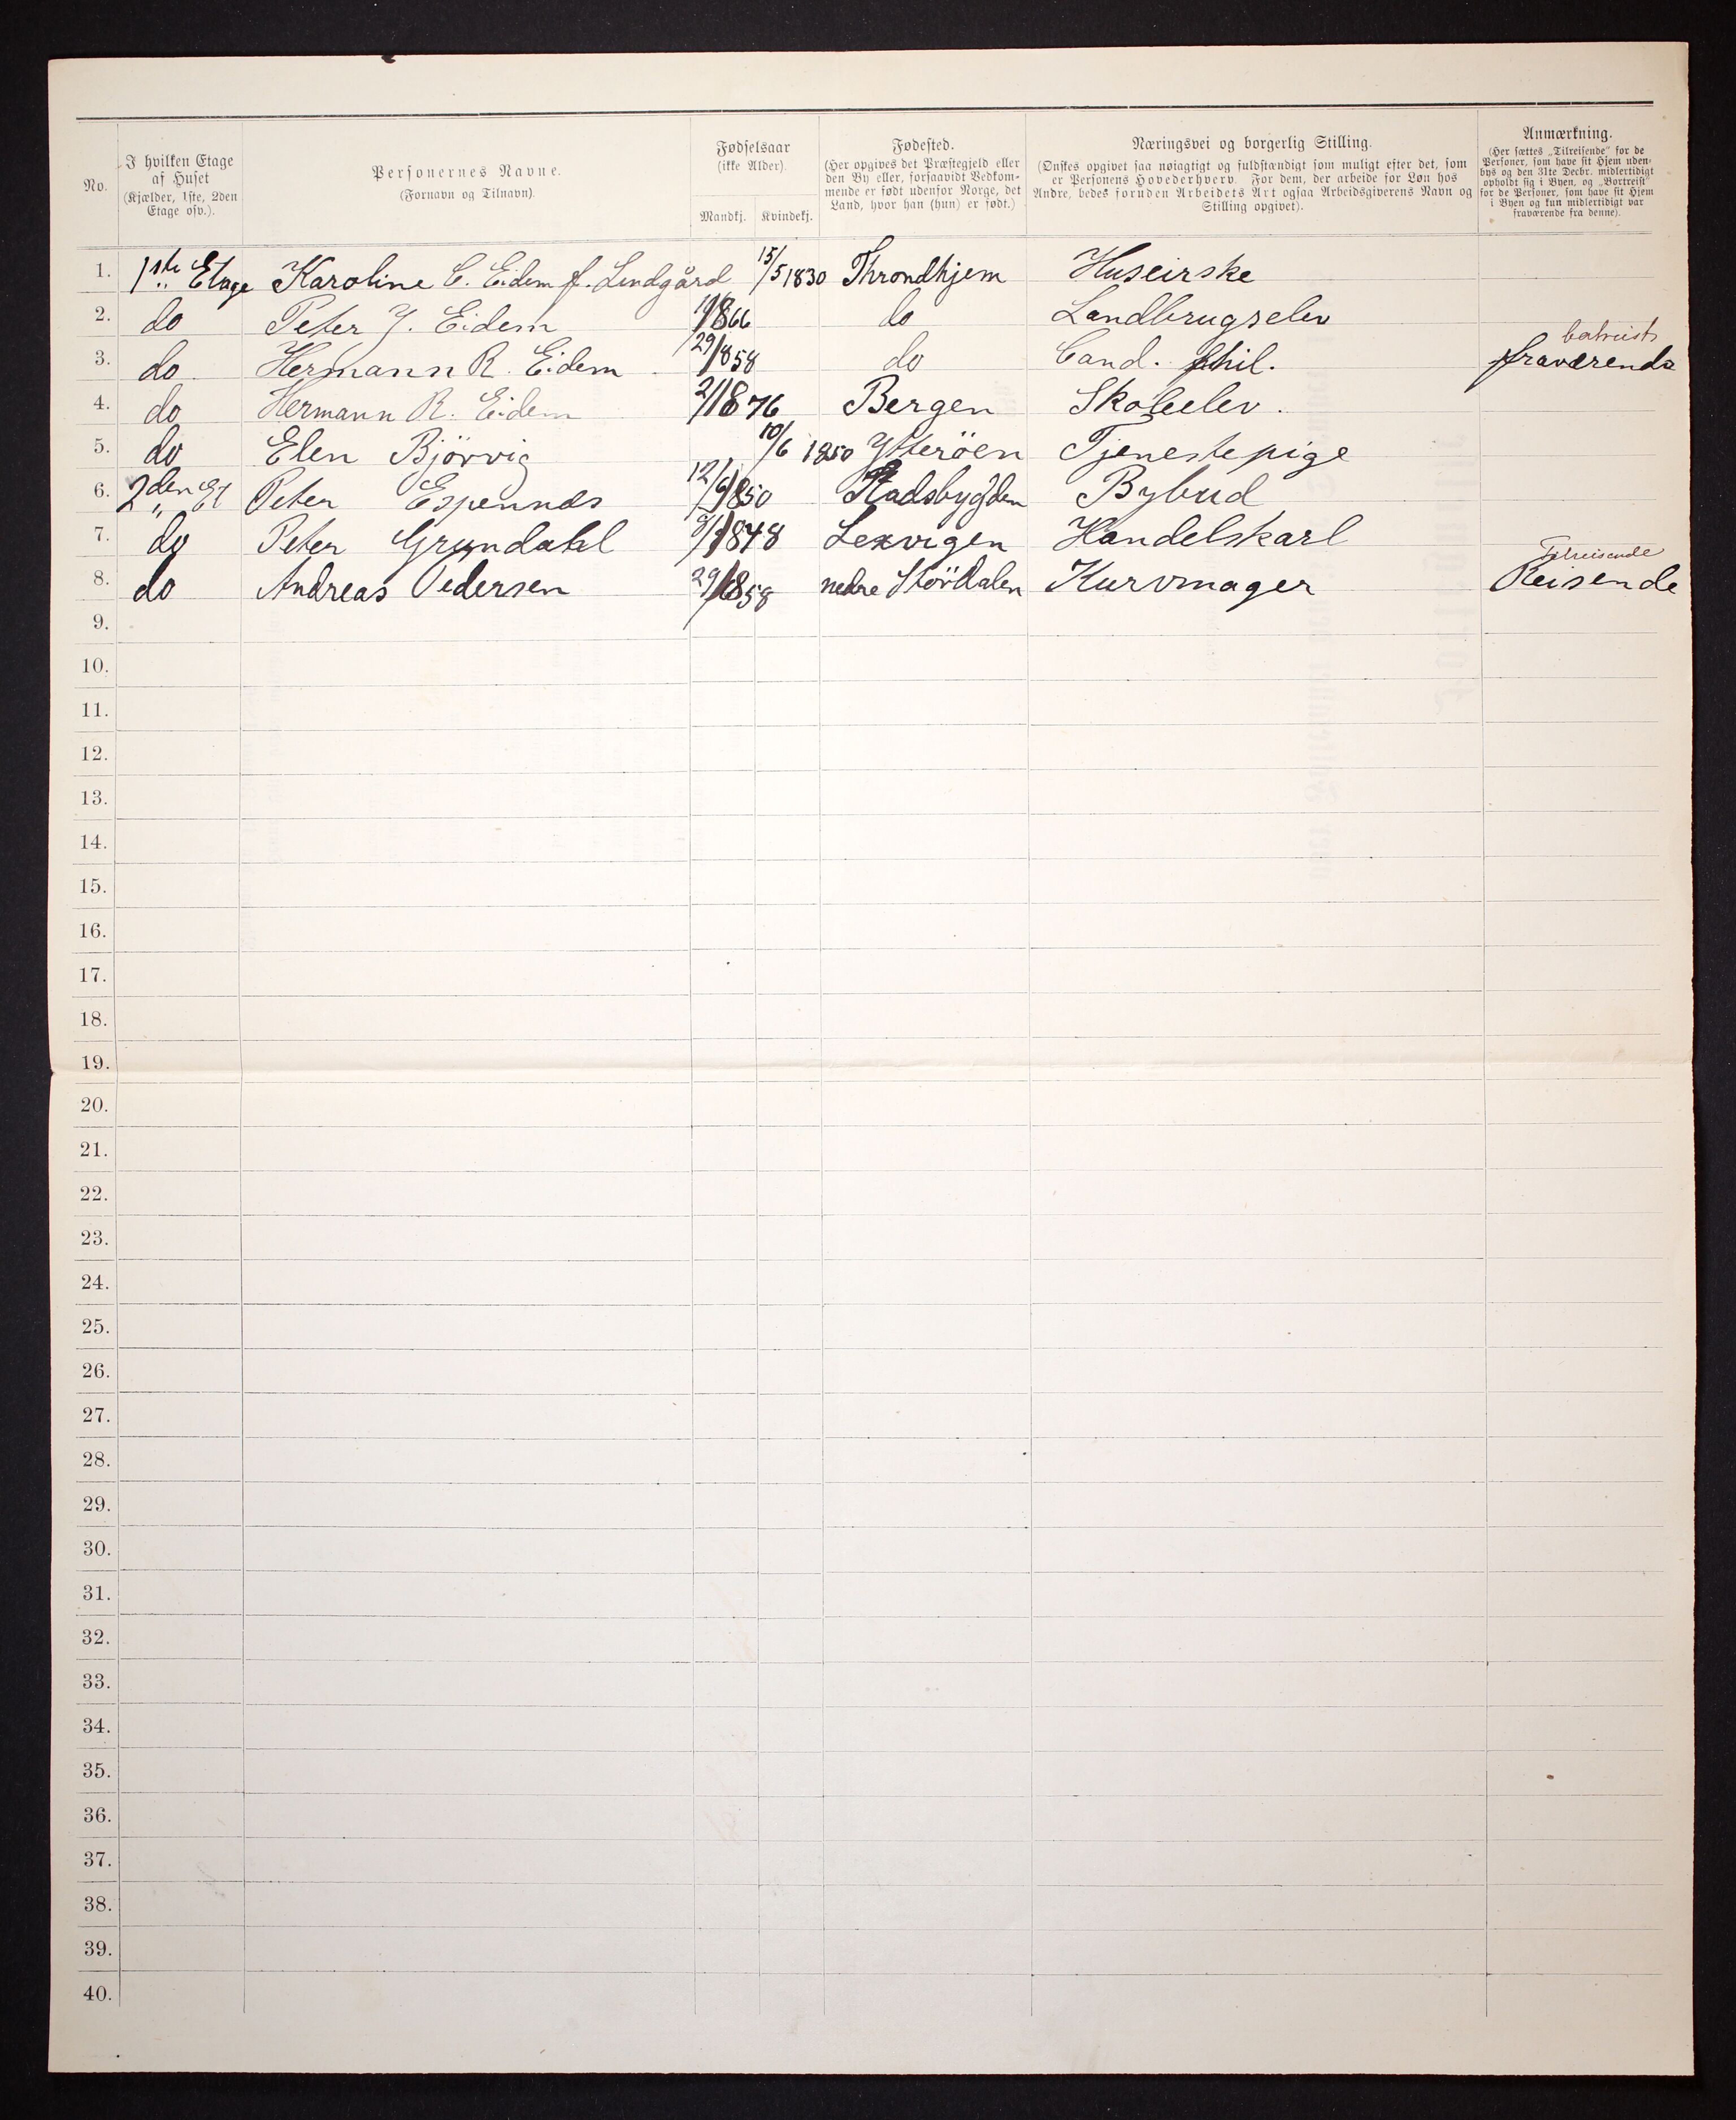 No.
I hvilken Etage
af Huset
(Kjælder, 1ste, 2den
Etage osv.).
Personernes Navne.
(Fornavn og Tilnavn).
Fødselsaar
(ikke Alder).
Mandkj. Kvindekj.
Fødested.
(Her opgives det Præstegjeld eller
den By eller, forsaavidt Vedkom-
mende er født udenfor Norge, det
Land, hvor han (hun) er født.)
Næringsvei og borgerlig Stilling.
(Ønskes opgivet saa nøiagtigt og fuldstændigt som muligt efter det, som
er Personens Hovederhverv. For dem, der arbeide for Løn hos
Andre, bedes foruden Arbeidets Art ogsaa Arbeidsgiverens Navn og
Stilling opgivet).
Anmærkning.
(Her sættes „Tilreisende“ for de
Personer, som have sit Hjem uden-
bys og den 31te Decbr. midlertidigt
opholdt sig i Byen, og „Bortreist“
for de Personer, som have sit Hjem
i Byen og kun midlertidigt var
fraværende fra denne).
1. 1ste Etage Karoline C. Eidem f. Lindgård 15/5 1830 Throndhjem Huseirske
2. do Peter J. Eidem do Landbrugselev
3. do Hermann R. Eidem do Cand. phil. fraværende
4. do Hermann R. Eidem 2/1876 Bergen Skoleelev.
5. do Elen Bjørvig 10/6 1850 Ytteröen Tjenestepige
6. 2den Et Peter Espennes 12/6 1850 Stadsbygden Bybud
7. do Peter Grøndahl 1848 Lexvigen Handelskarl
Tilreisende
8. do Andreas Pedersen nedre Stördalen Kurvmager Reisende
9.
10.
11.
12.
13.
14.
15.
16.
17.
18.
19.
20.
21.
22.
23.
24.
25.
26.
27.
28.
29.
30.
31.
32.
33.
34.
35.
36.
37.
38.
39.
40.